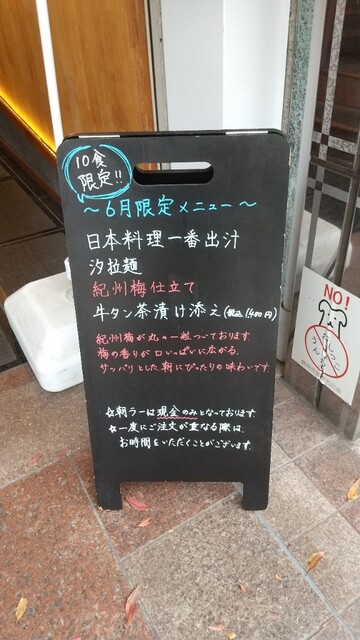 10食
限定!!
～6月限定メニュー～
日本料理一番出汁
汐拉麺
紀州梅仕立て
牛タン茶漬け添え(税込1400円)
紀州梅が丸々一粒ついております
梅の香りが口いっぱいに広がる、
サッパリとした朝にぴったりの味わいです。
☆朝ラーは現金のみとなっております
☆一度にご注文が重なる際は、
お時間をいただくことがございます。
NO!